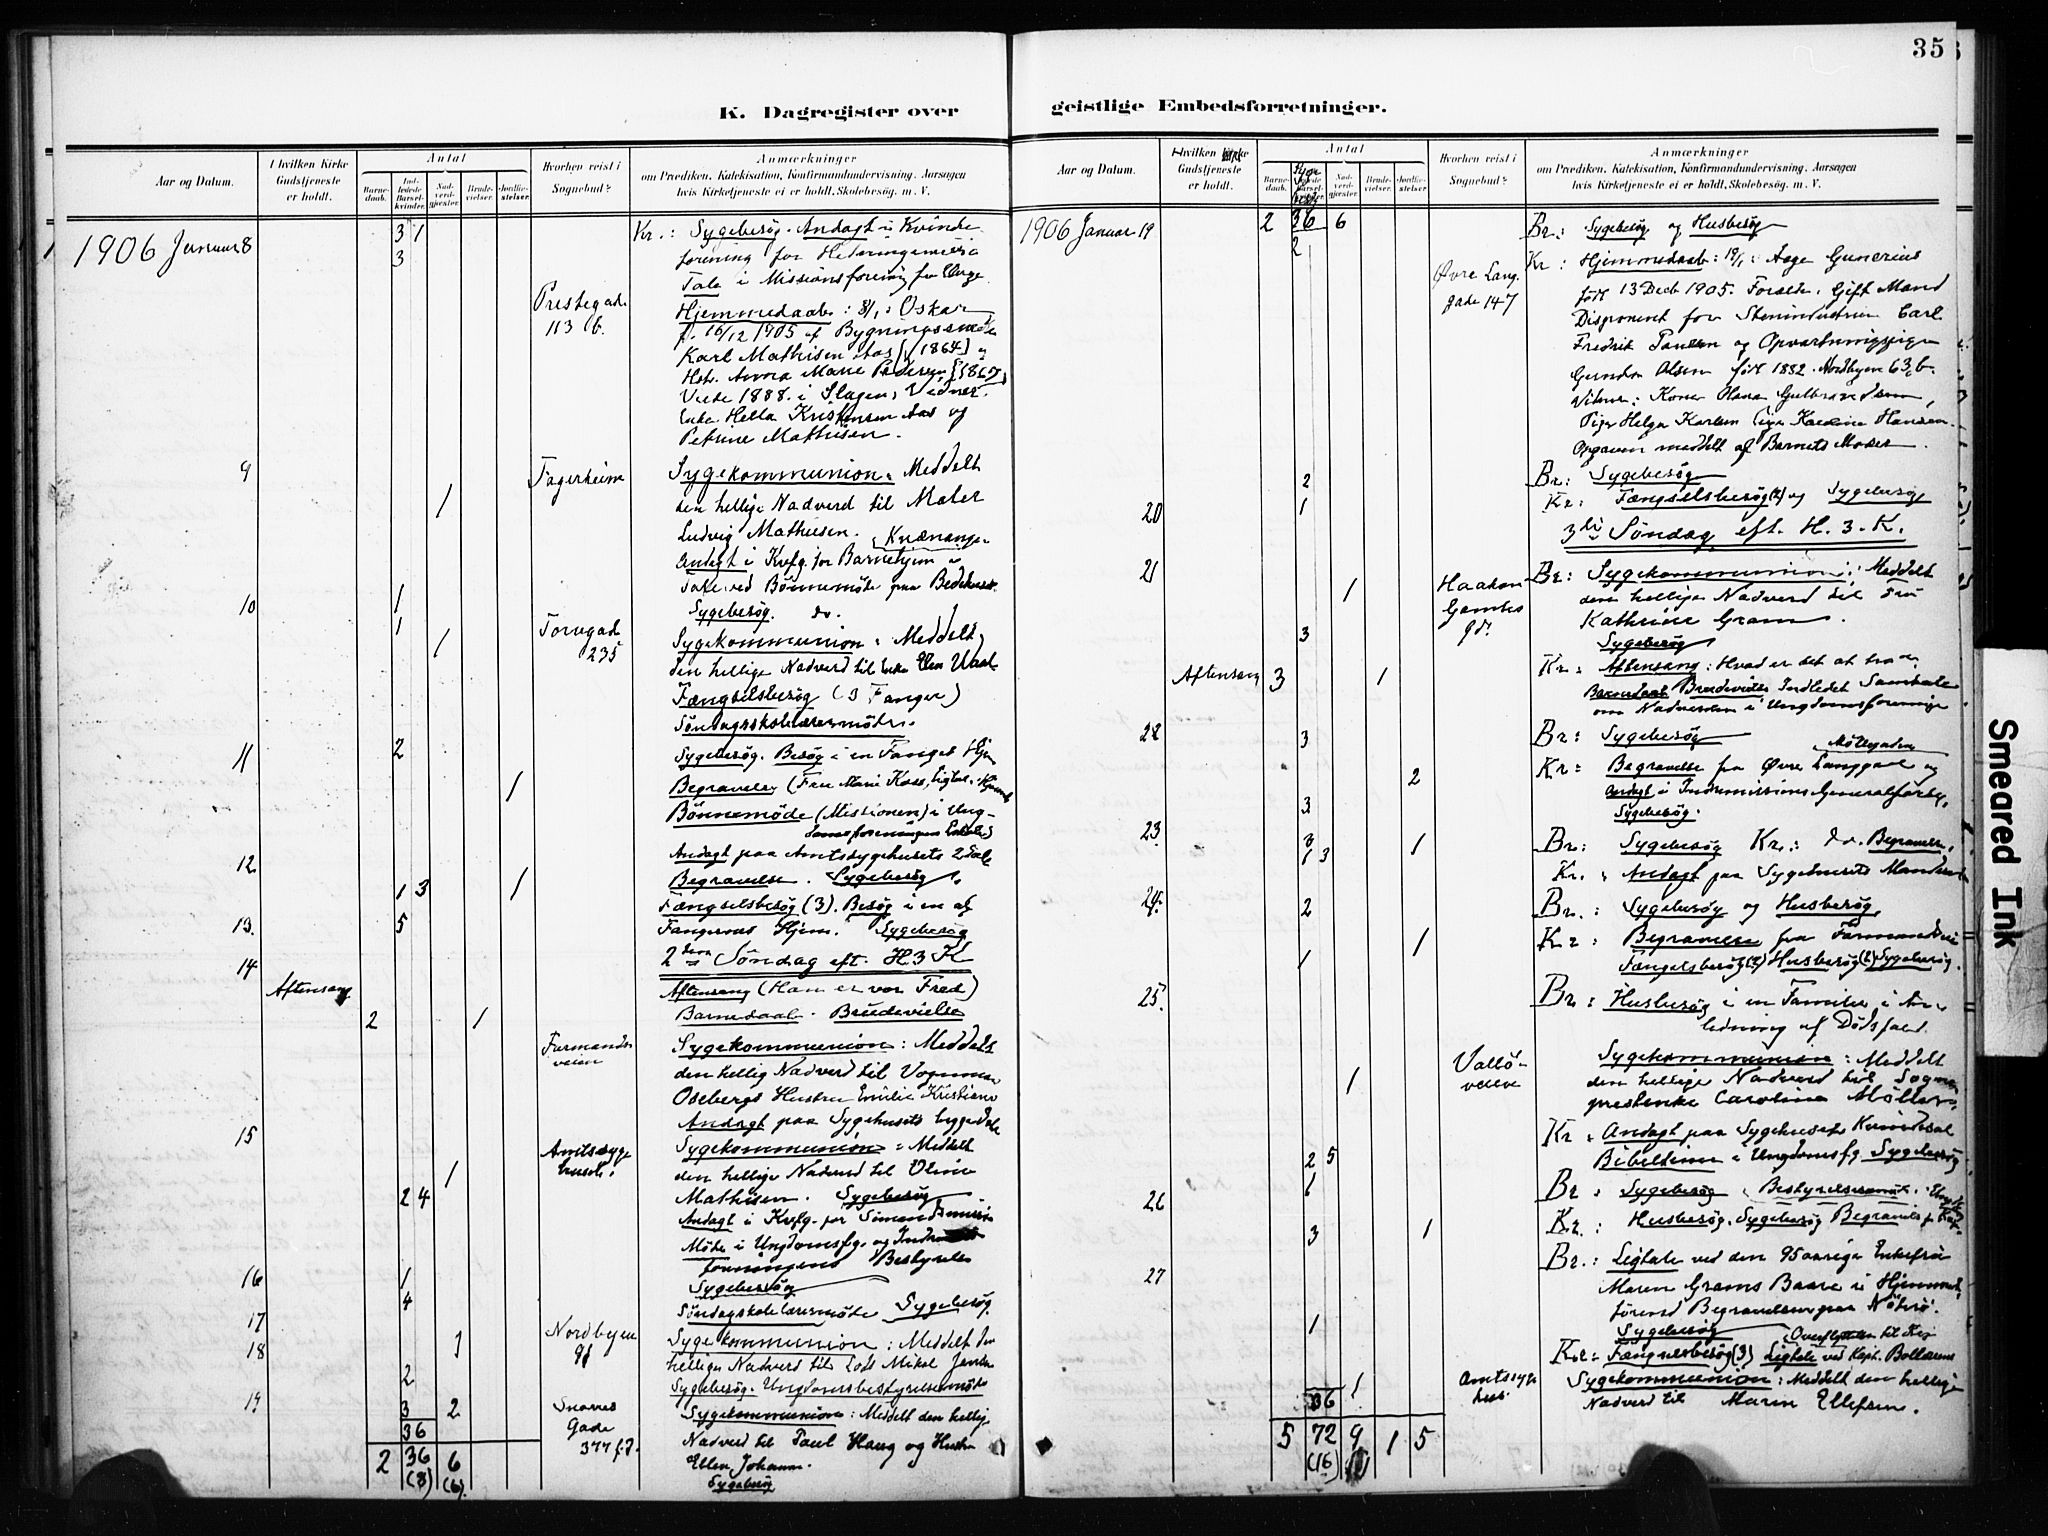 35
K. Dagregister over geistlige Embedsforretninger.
Aar og Datum.
I hvilken Kirke Gudstjeneste er holdt.
Antal
Barnedaab.
Indledede Barselkvinder.
Nadverdgjæster.
Brudevielser.
Jordfæstelser.
Hvorhen reist i Sognebud?
Anmærkninger
om Prædiken, Katekisation, Konfirmandundervisning, Aarsagen
hvis Kirketjeneste ei er holdt, Skolebesøg. m. V.
1906 Januar 8
3 1
3
Kr.: Sygebesøg. Andagt i Kvinde-
forening for Hedningemissio
Tale i Missionsforening for Unge
Prestegade
113 b.
Hjemmedaab: 8/1: Oskar
f. 16/12 1905 af Bygningssnedker
Karl Mathisen Aas [f 1864] og
Hstr. Anna Marie Pedersen [1867]
Viede 1888 i Slagen. Vidner:
Enke Hella Kristensen Aas og
Petrine Mathisen.
9
1
Fagerheim
Sygekommunion: Meddelt
den hellige Nadverd til Maler
Ludvig Mathisen.
Andagt i Kvfg. for Barnehjem
Tale ved Bönnemöde paa Bedehuset
10
1
Sygebesøg. do.
1
1
Torvgad
235
Sygekommunion: Meddelt
den hellige Nadverd til Enke Elen
Fængselsbesøg (3 Fanger)
Söndagsskolelærermöde.
11
2
Sygebesøg. Besøg i en Fanges Hjem
1
Begravelse (Fru Marie Koss, Ligtale i Hjemmet
Bönnemöde (Missionen) i Ung-
domsforeningens Lokale)
12
Andagt paa Amtssygehusets 2 Sale
1 3
1
Begravelse. Sygebesøg.
Fængselsbesøg (3). Besøg i en af
13.
5
Fangernes Hjem. Sygebesøg
2den Söndag eft. H 3 K
14
Aftensang
2
1
Aftensang (Han er vor Fred)
Barnedaab. Brudevielse
Farmands
veien
Sygekommunion: Meddelt
den hellig Nadverd til Vognman
Osebergs Hustru Emilie Kristiane
Andagt paa Sygehusets begge Sale
15
1
Amtssyge
huset.
Sygekommunion: Meddelt
den hellige Nadverd til Oline
2 4
Mathisen. Sygebesøg
Andagt i Kvfg. for Sömandsmission
Möde i Ungdomsfg. og Indre
foreningens Bestyrelse
16
1
Sygebesøg
17
4
Söndagsskolelærermöde Sygebesøg.
18
1
Nordbyen
91
Sygekommunion: Meddelt den
hellige Nadverd til Lods Mikal Jensen
2
Sygebesøg. Ungdomsbestyrelsesmöde
19
3
2
Snorres
Gade
377
Sygekommunion: Meddelt den hellige
Nadverd til Paul Haug og Hustru
Ellen Johanne.
Sygebesøg
36
2 36 6
(8) (6).
Aar og Datum.
I hvilken Kirke Gudstjeneste er holdt.
Antal
Barnedaab.
Sygebesøg
Nadverdgjæster.
Brudevielser.
Jordfæstelser.
Hvorhen reist i Sognebud?
Anmærkninger
om Prædiken, Katekisation, Konfirmandundervisning, Aarsagen
hvis Kirketjeneste ei er holdt, Skolebesøg. m. V.
1906 Januar 19
2 36 6
2
Br.: Sygebesøg og Husbesøg
Øvre Lang.
gade 147
Kr: Hjemmedaab: 19/1: Aage Gunerius
født 13 Decb 1905. Forældre. Gift Mand
Disponent for Stenindustrien Carl
Fredrik Paulsen og Opvartningspige
Gunda Olsen født 1882. Nordbyen 63 b.
Vidner: Kone Olava Gulbrandsen,
Pige Helga Karlsen Pige Karoline Hansen.
Opgaven meddelt af Barnets Moder
2
Br: Sygebesøg
20
1
Kr: Fængselsbesøg (2) og Sygebesøg
3die Söndag eft. H. 3. K.
21
1
Haakon
Gamles
gd.
Br: Sygekommunion: Meddelt
den hellige Nadverd til Fru
Kathrine Gram.
3
Sygebesøg
Aftensang
3
1
Kr: Aftensang: Hvad er det at tro
Barnedaab Brudevielse Indledet Samtale
om Nadverden i Ungdomsforening
22
3
Br: Sygebesøg
Möllegaden
2
Kr: Begravelse fra Øvre Langgade og
Andagt i Indremissions Generalforsg.
3
Sygebesøg.
23
3
1 3
1
Br: Sygebesøg Kr.: do. Begravelse.
Kr.: Andagt paa Sygehusets Mandssal
24
2
Br.: Sygebesøg og Husbesøg
1
1
Kr: Begravelse fra Farmandsvei
Fængselsbesøg (2) Husbesøg (2) Sygebesøg.
25.
Br: Husbesøg i en Familie i An-
ledning af Dödsfald.
1
Vallö-
veien
Sygekommunion: Meddelt
den hellige Nadverd til Sogne
prestenke Caroline Möller.
Kr: Andagt paa Sygehusets Kvindesal
2 5
Bibeltime i Ungdomsfg. Sygebesøg
26
1
Br: Sygebesøg Bestyrelsesmöte
3
1
Kr.: Husbesøg. Sygebesøg Begravels
27
Br.: Ligtale ved den 95 aarige Enkefru
Maren Grams Baare i Hjemmet,
förend Begravelsen paa Nöterö.
1
Sygebesøg
Kr: Fængselsbesøg (3) Ligtale ved Kapt. Bollærens
1
Amtssyge
hus.
Sygekommunion: Meddelt den hellige
Nadverd til Maren Ellefsen.
36
5 72 9 1 5
(16)
Smeared Ink